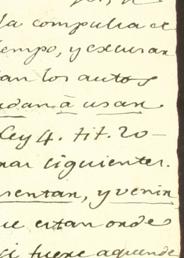 la compulsa de
tiempo, y excusan
an los autos
udan à usan
Ley 4. tit. 20-
nar siguientes.
esentan, y venin
ue estan onde
si fuere aquende